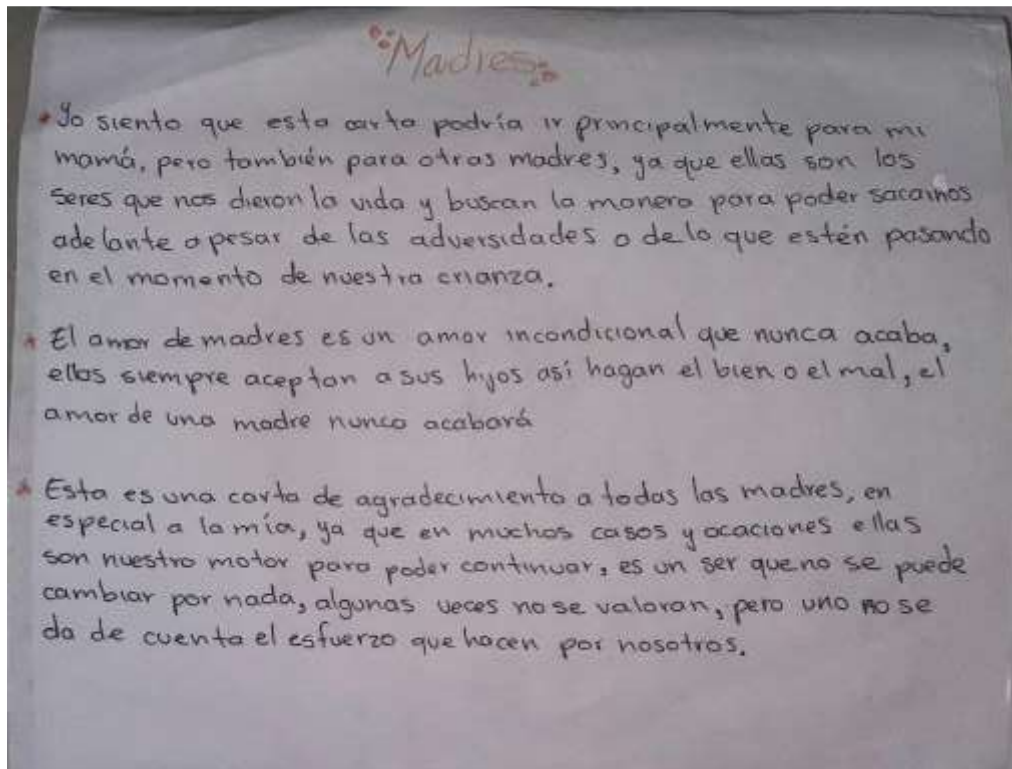 Madres
Yo siento que esta carta podría ir principalmente para mi
mamá, pero también para otras madres, ya que ellas son los
seres que nos dieron la vida y buscan la manera para poder sacarnos
adelante a pesar de las adversidades o de lo que estén pasando
en el momento de nuestra crianza.
El amor de madres es un amor incondicional que nunca acaba,
ellas siempre aceptan a sus hijos así hagan el bien o el mal, el
amor de una madre nunca acabará
Esta es una carta de agradecimiento a todas las madres, en
especial a la mía, ya que en muchos casos y ocaciones ellas
son nuestro motor para poder continuar, es un ser que no se puede
cambiar por nada, algunas veces no se valoran, pero uno no se
da de cuenta el esfuerzo que hacen por nosotros.